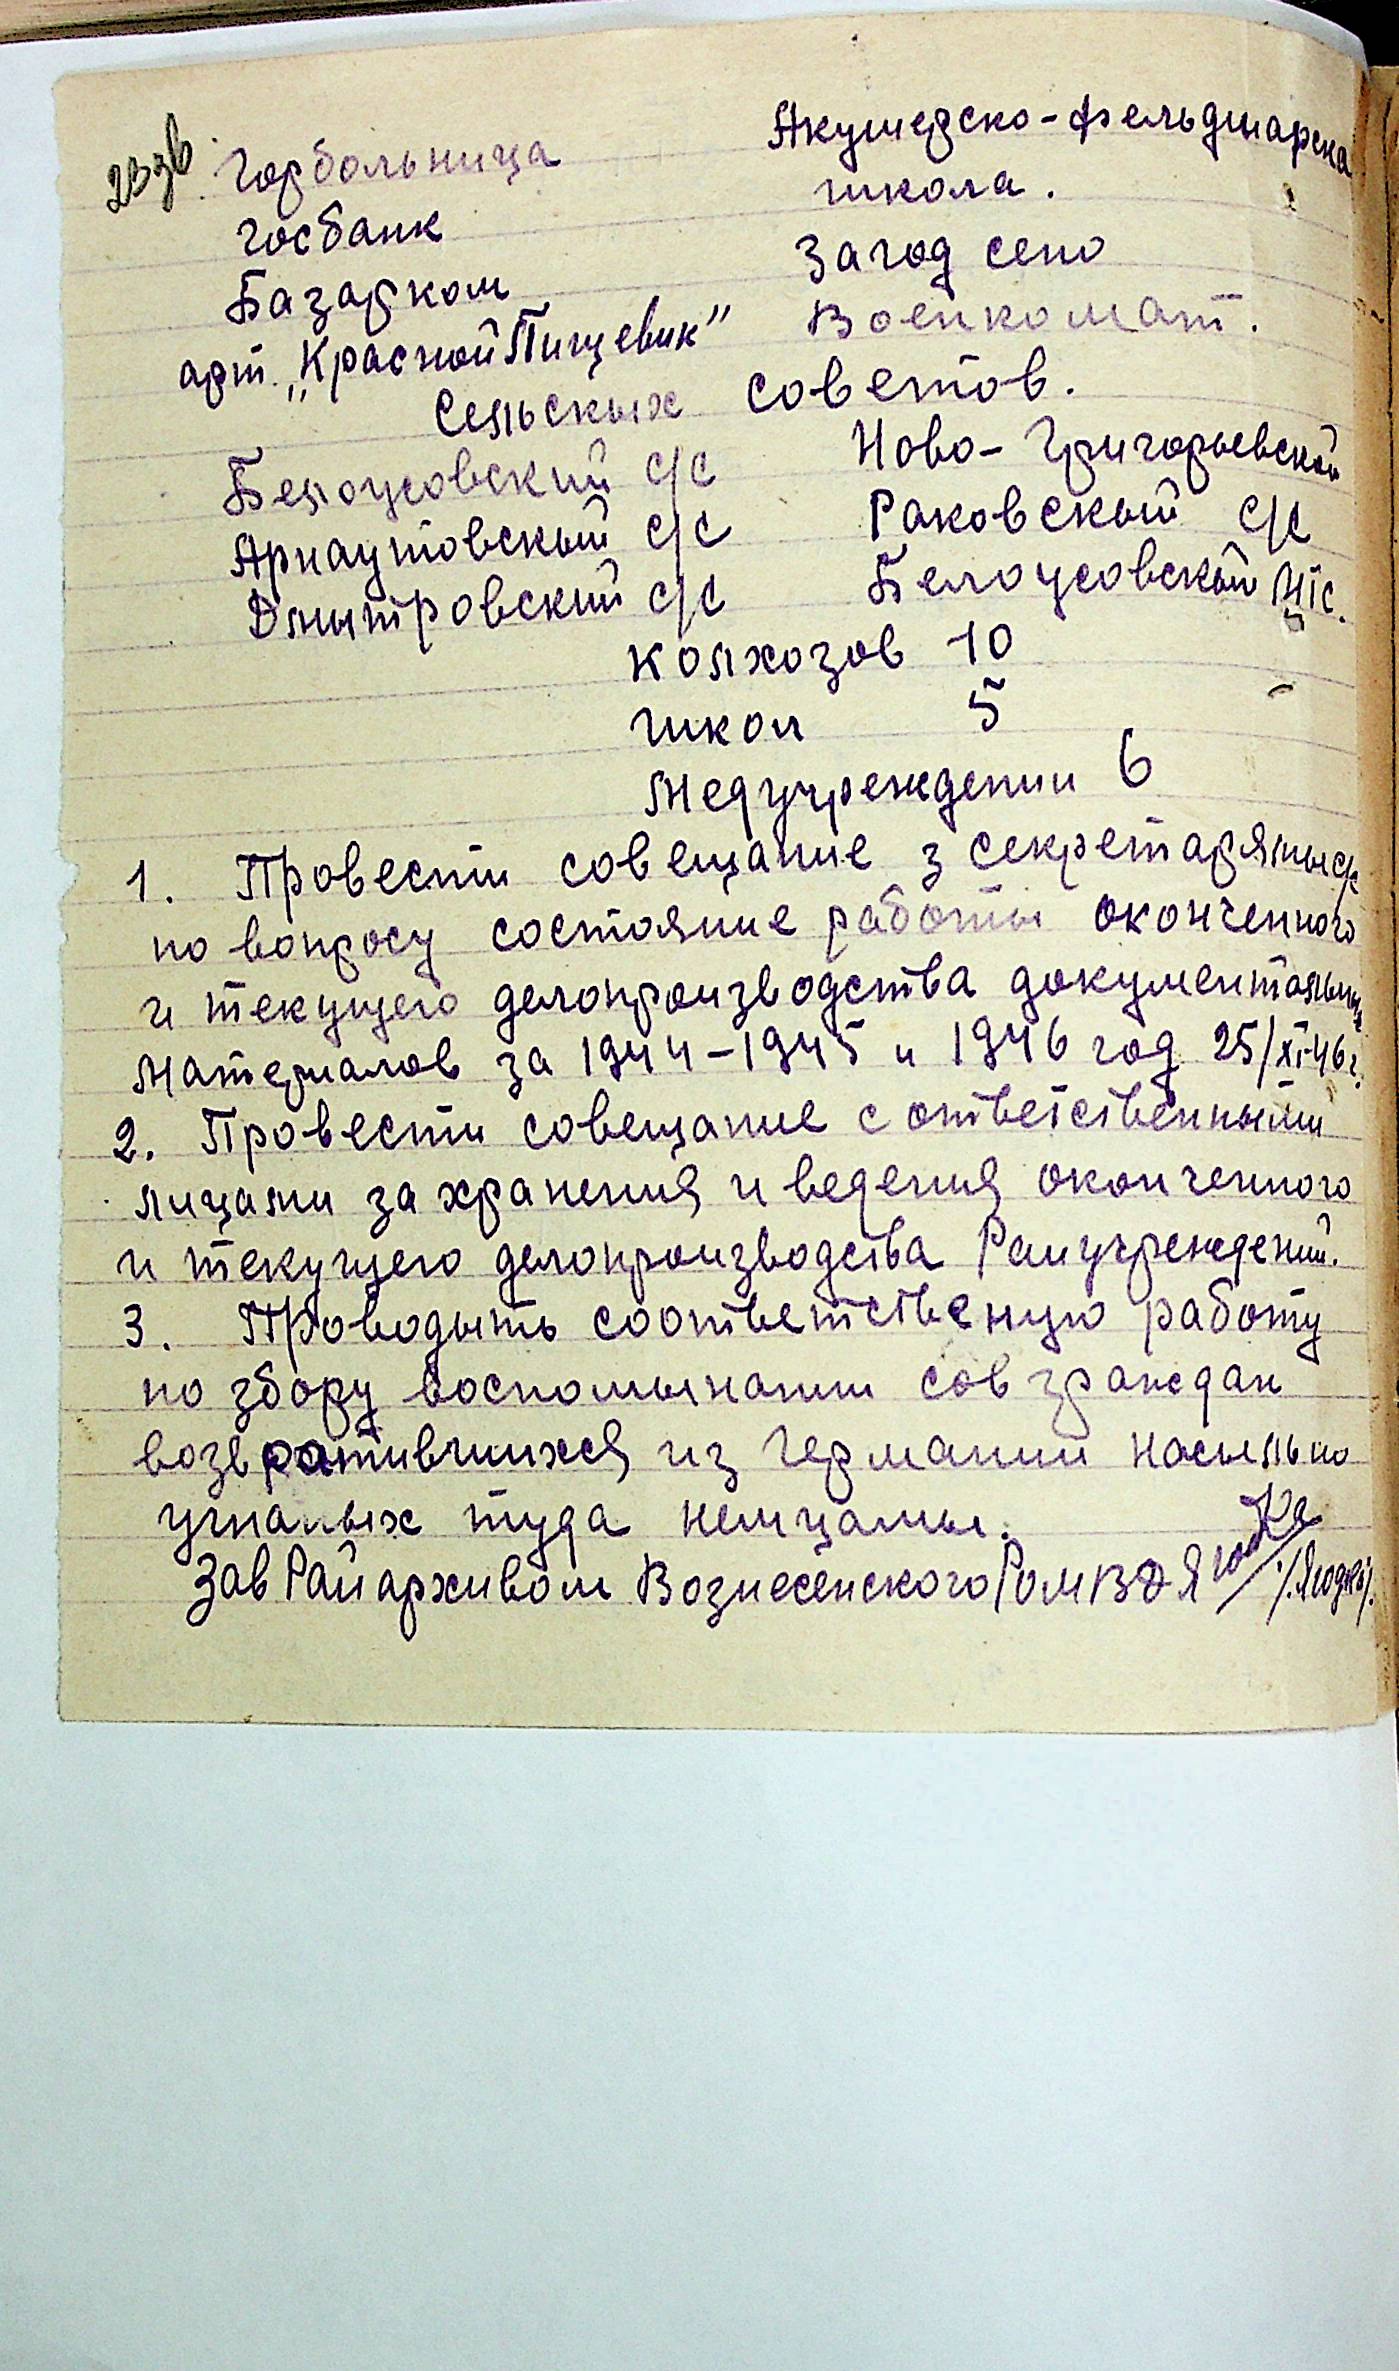 23зв
Горбольница
Госбанк
Базарком
арт. „Красной Пищевик"
Акушерско-фельдшарска
школа.
Загод сено
Военкомат.
Сельскых советов.
Белоусовский с/с
Арнаутовскый с/с
Дмытровский с/с
Ново-Григорьевской
Раковскый с/с
Белоусовскый
Колхозов 10
Школ 5
Медучреждении 6
1. Провести совещание з секретарямы с/с
по вопросу состояние работы оконченного
и текущего делопроизводства документальных
материалов за 1944-1945 и 1946 год 25/XI-46 г.
2. Провести совещание с ответственными
лицами за хранения и ведения оконченного
и текущего делопроизводства Райучреждений.
3. Проводыть соответственую работу
по збору воспомынании сов граждан
возвратившихся из Германии насыльно
угналых туда немцамы.
Зав Райархивом Вознесенского Ром ВД Ягодка